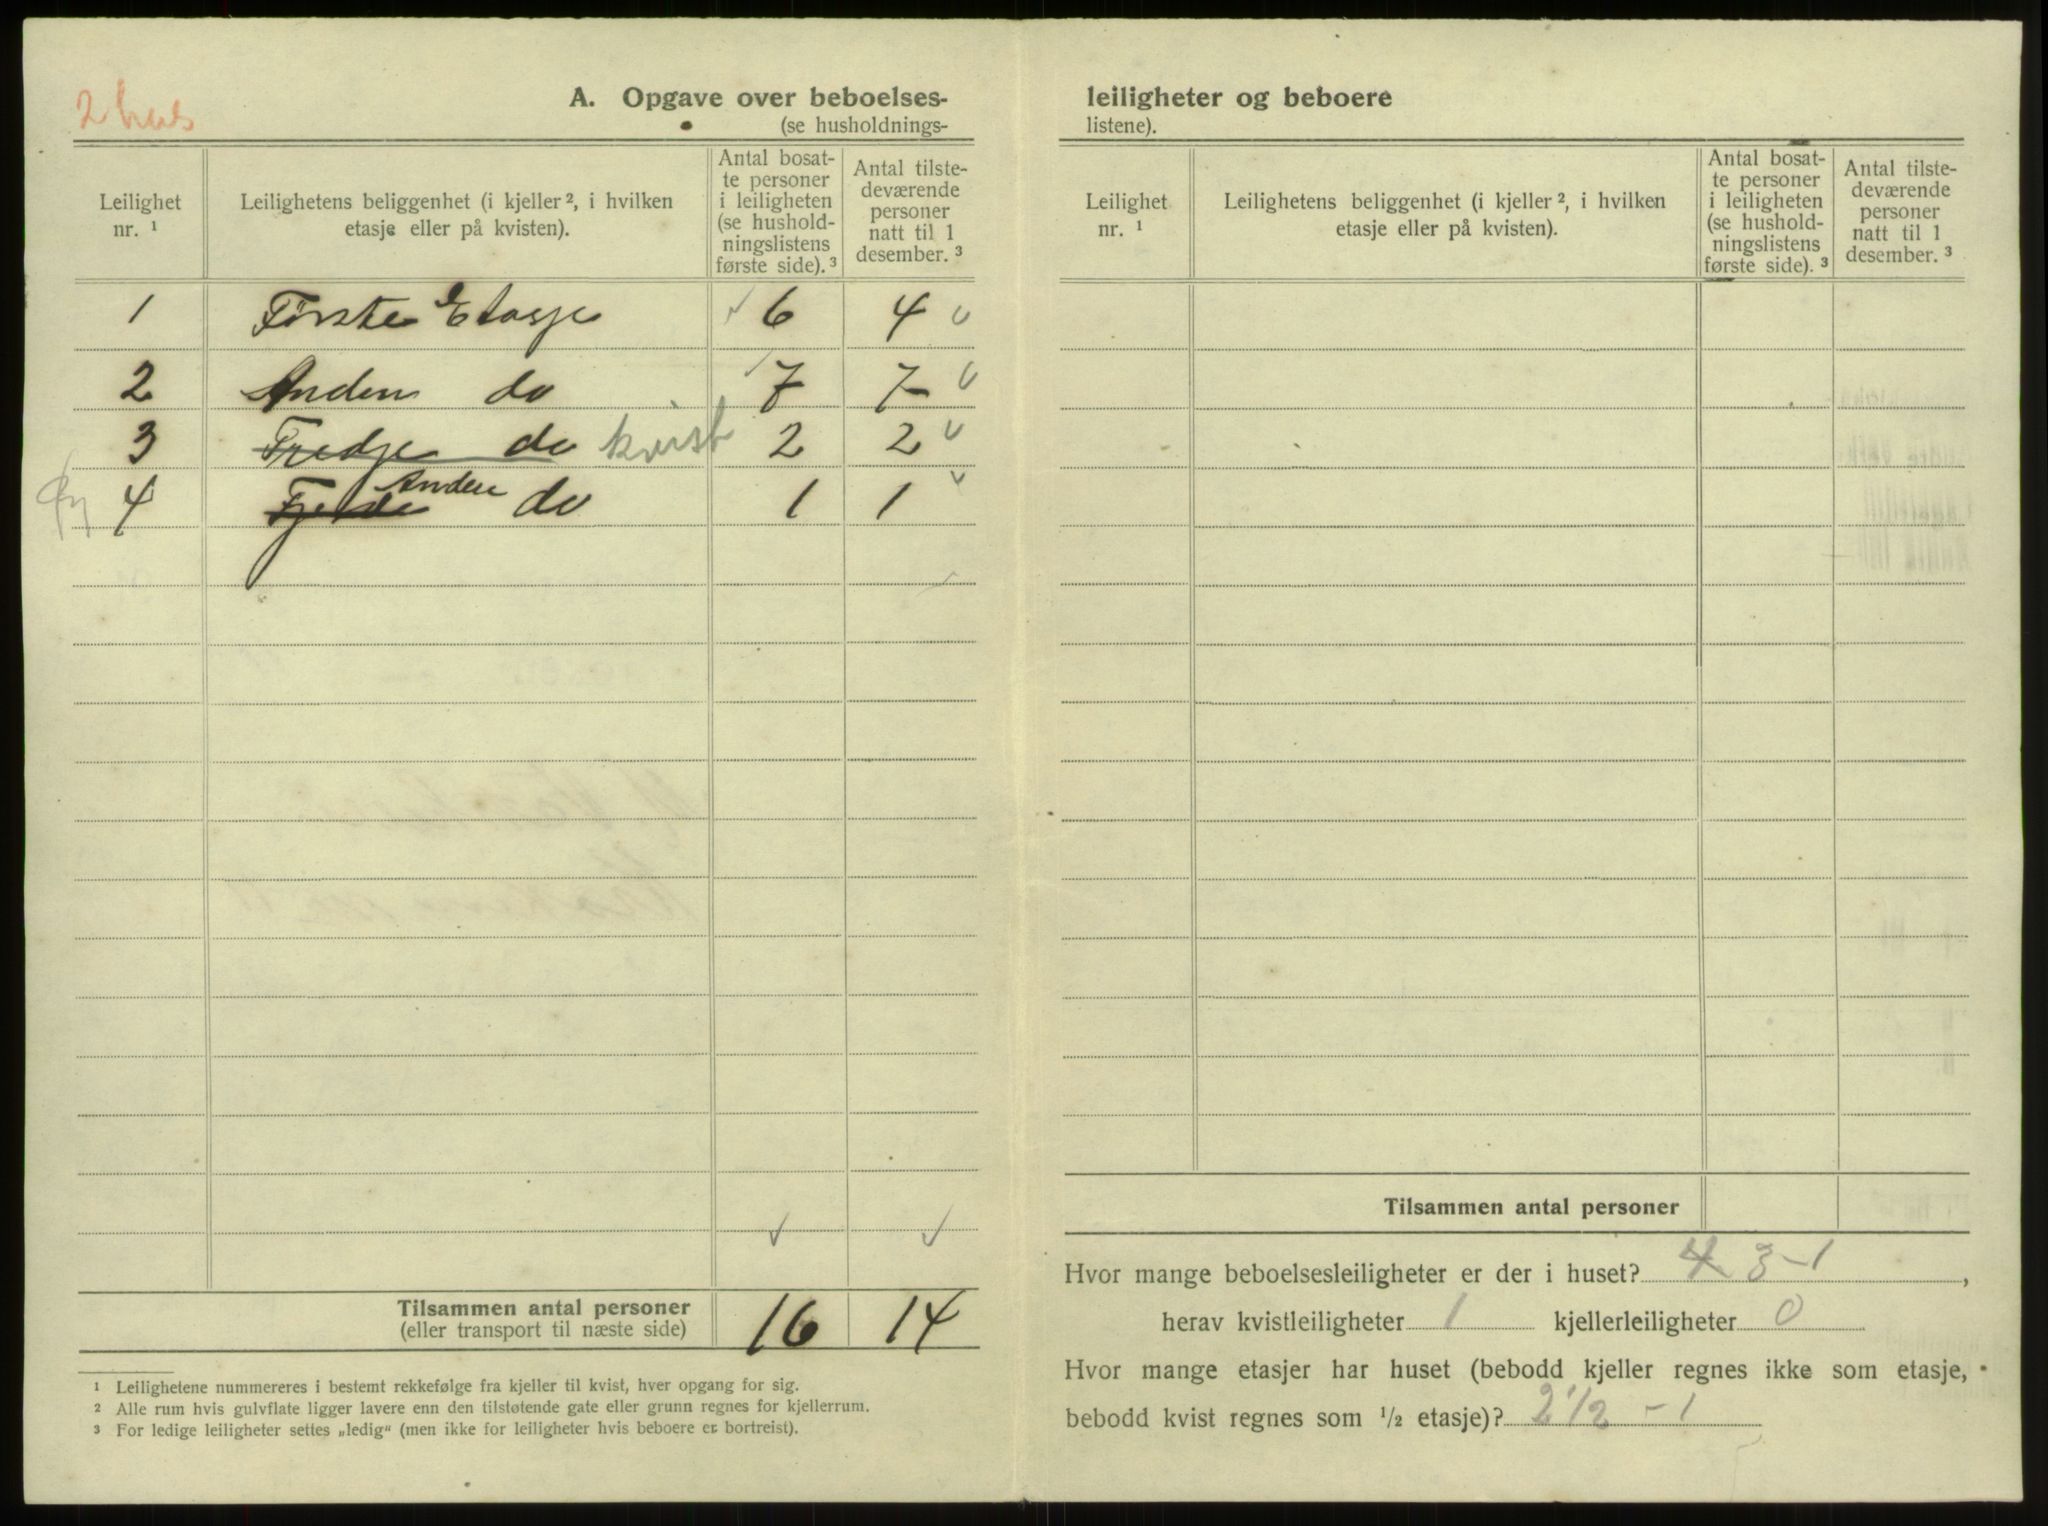 2 hus
A. Opgave over beboelses-
(se husholdnings-
Leilighet nr. ¹ | Leilighetens beliggenhet (i kjeller ², i hvilken etasje eller på kvisten). | Antal bosatte personer i leiligheten (se husholdningslistens første side). ³ | Antal tilstedeværende personer natt til 1 desember. ³
1 Første Etasje 6 4
2 Anden do 7 7
3 Tredje do kvist 2 2
4 Fjerde Anden do 1 1
Tilsammen antal personer 16 14
(eller transport til næste side)
¹ Leilighetene nummereres i bestemt rekkefølge fra kjeller til kvist, hver opgang for sig.
² Alle rum hvis gulvflate ligger lavere enn den tilstøtende gate eller grunn regnes for kjellerrum.
³ For ledige leiligheter settes „ledig“ (men ikke for leiligheter hvis beboere er bortreist).
leiligheter og beboere
listene).
Leilighet nr. ¹ | Leilighetens beliggenhet (i kjeller ², i hvilken etasje eller på kvisten). | Antal bosatte personer i leiligheten (se husholdningslistens første side). ³ | Antal tilstedeværende personer natt til 1 desember. ³
Tilsammen antal personer
Hvor mange beboelsesleiligheter er der i huset? 4 3-1,
herav kvistleiligheter 1 kjellerleiligheter 0
Hvor mange etasjer har huset (bebodd kjeller regnes ikke som etasje,
bebodd kvist regnes som ½ etasje)? 2 1/2 - 1